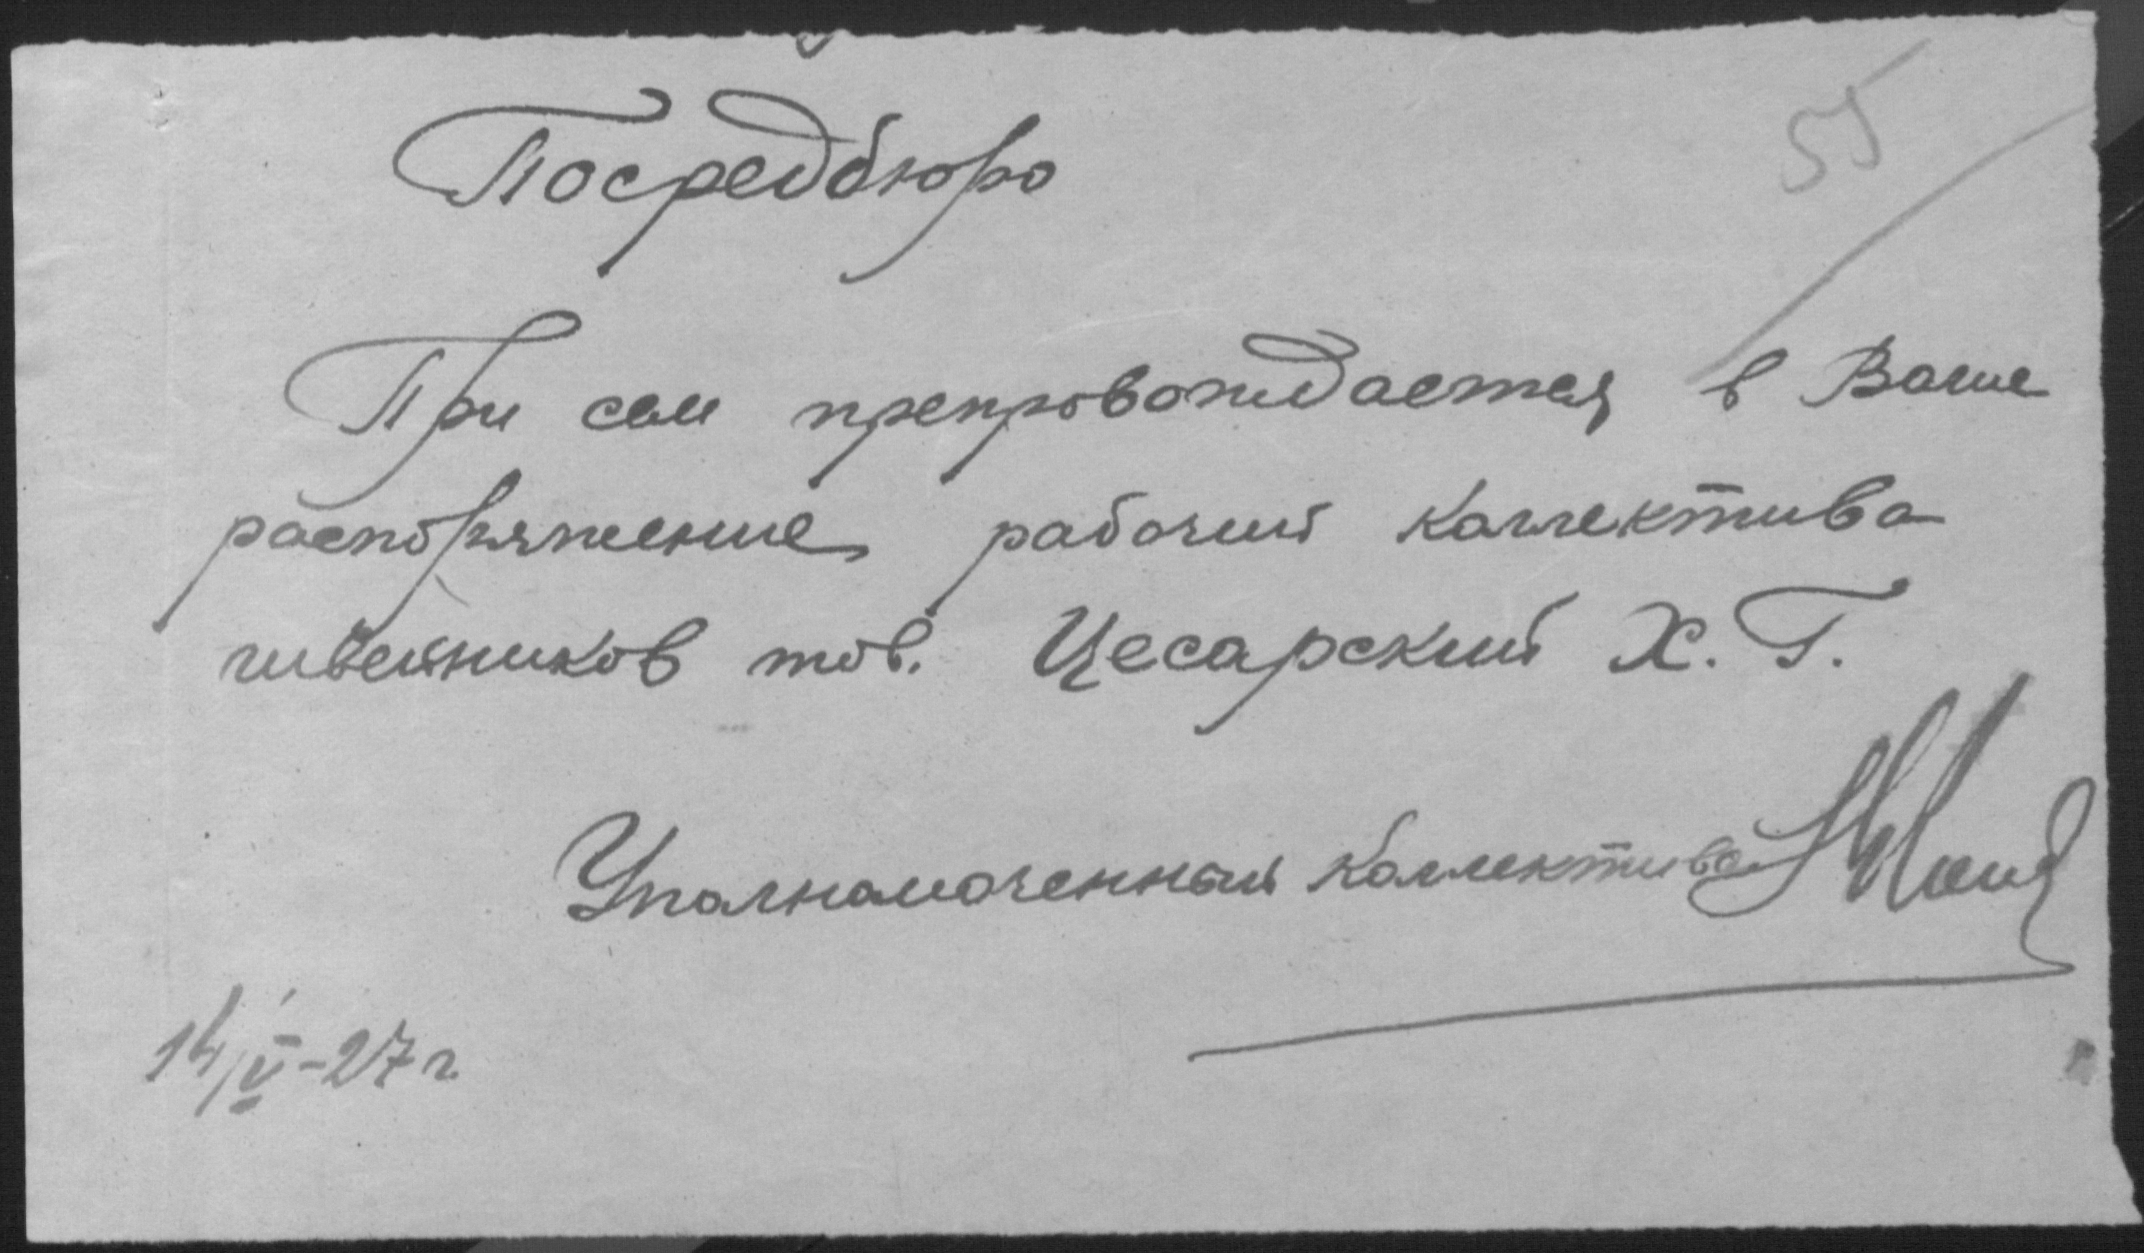 55
Посредбюро
При сем препровождается в Ваше
распоряжение рабочий коллектива
швейников тов. Цесарский Х. Г.
Уполномоченный коллектива
14/V-27 г.